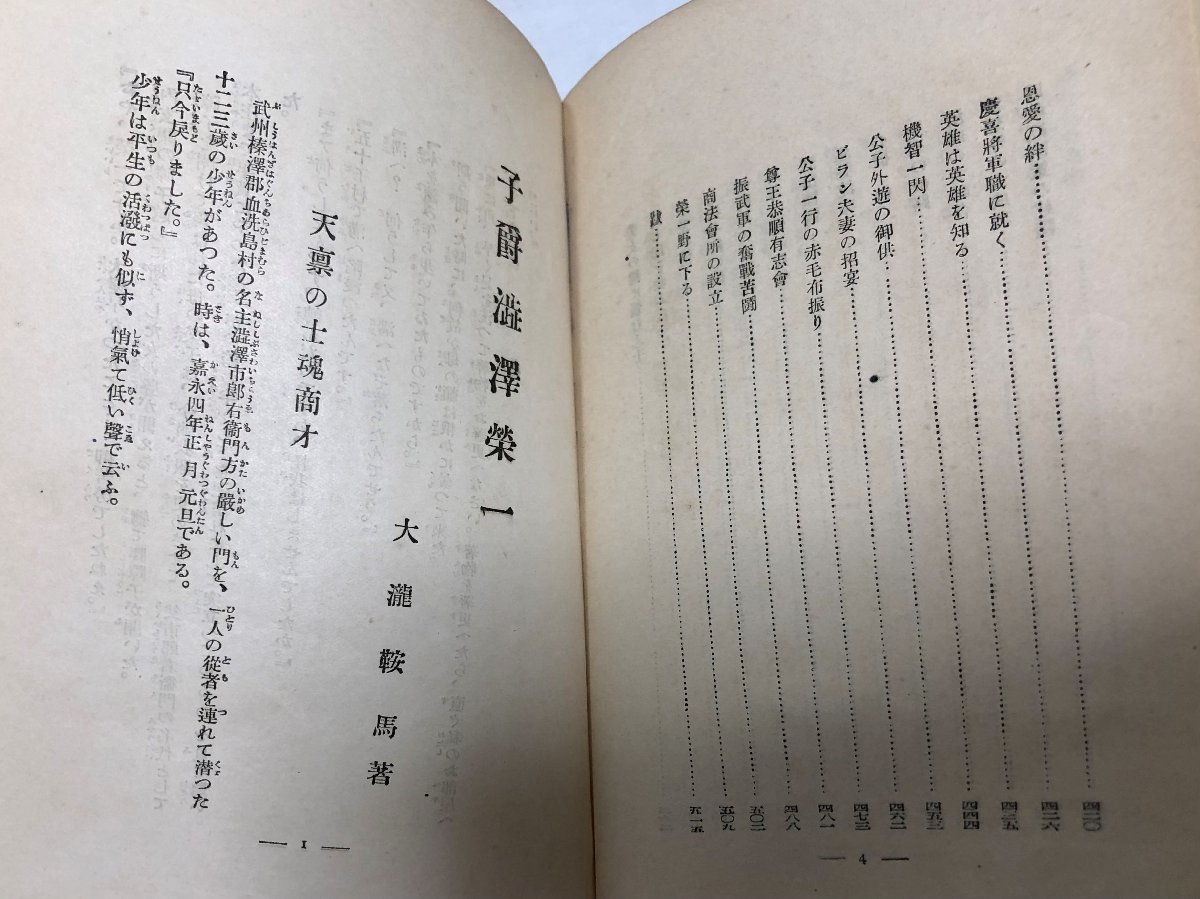 恩愛の絆 四二〇
慶喜將軍職に就く 四二六
英雄は英雄を知る 四三五
機智一閃 四四四
公子外遊の御供 四五三
ビラン夫妻の招宴 四六二
公子一行の赤毛布振り 四七三
尊王恭順有志會 四八一
振武軍の奮戰苦鬪 四八八
商法會所の設立 五〇二
榮一野に下る 五〇九
跋 五一五
— 4 —
子爵澁澤榮一
大瀧鞍馬著
天禀の士魂商才
武州榛澤郡血洗島村の名主澁澤市郎右衞門方の嚴しい門を、一人の從者を連れて潜つた
十二三歲の少年があつた。時は、嘉永四年正月元旦である。
『只今戾りました。』
少年は平生の活潑にも似ず、悄氣て低い聲で云ふ。
— 1 —